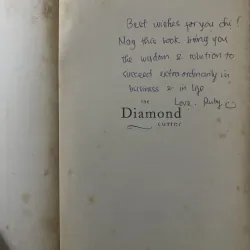 Best wishes for you chi!
May this book bring you
the wisdom & solution to
succeed extraordinarily in
business & in life
Love, Ruby
the
Diamond
cutter